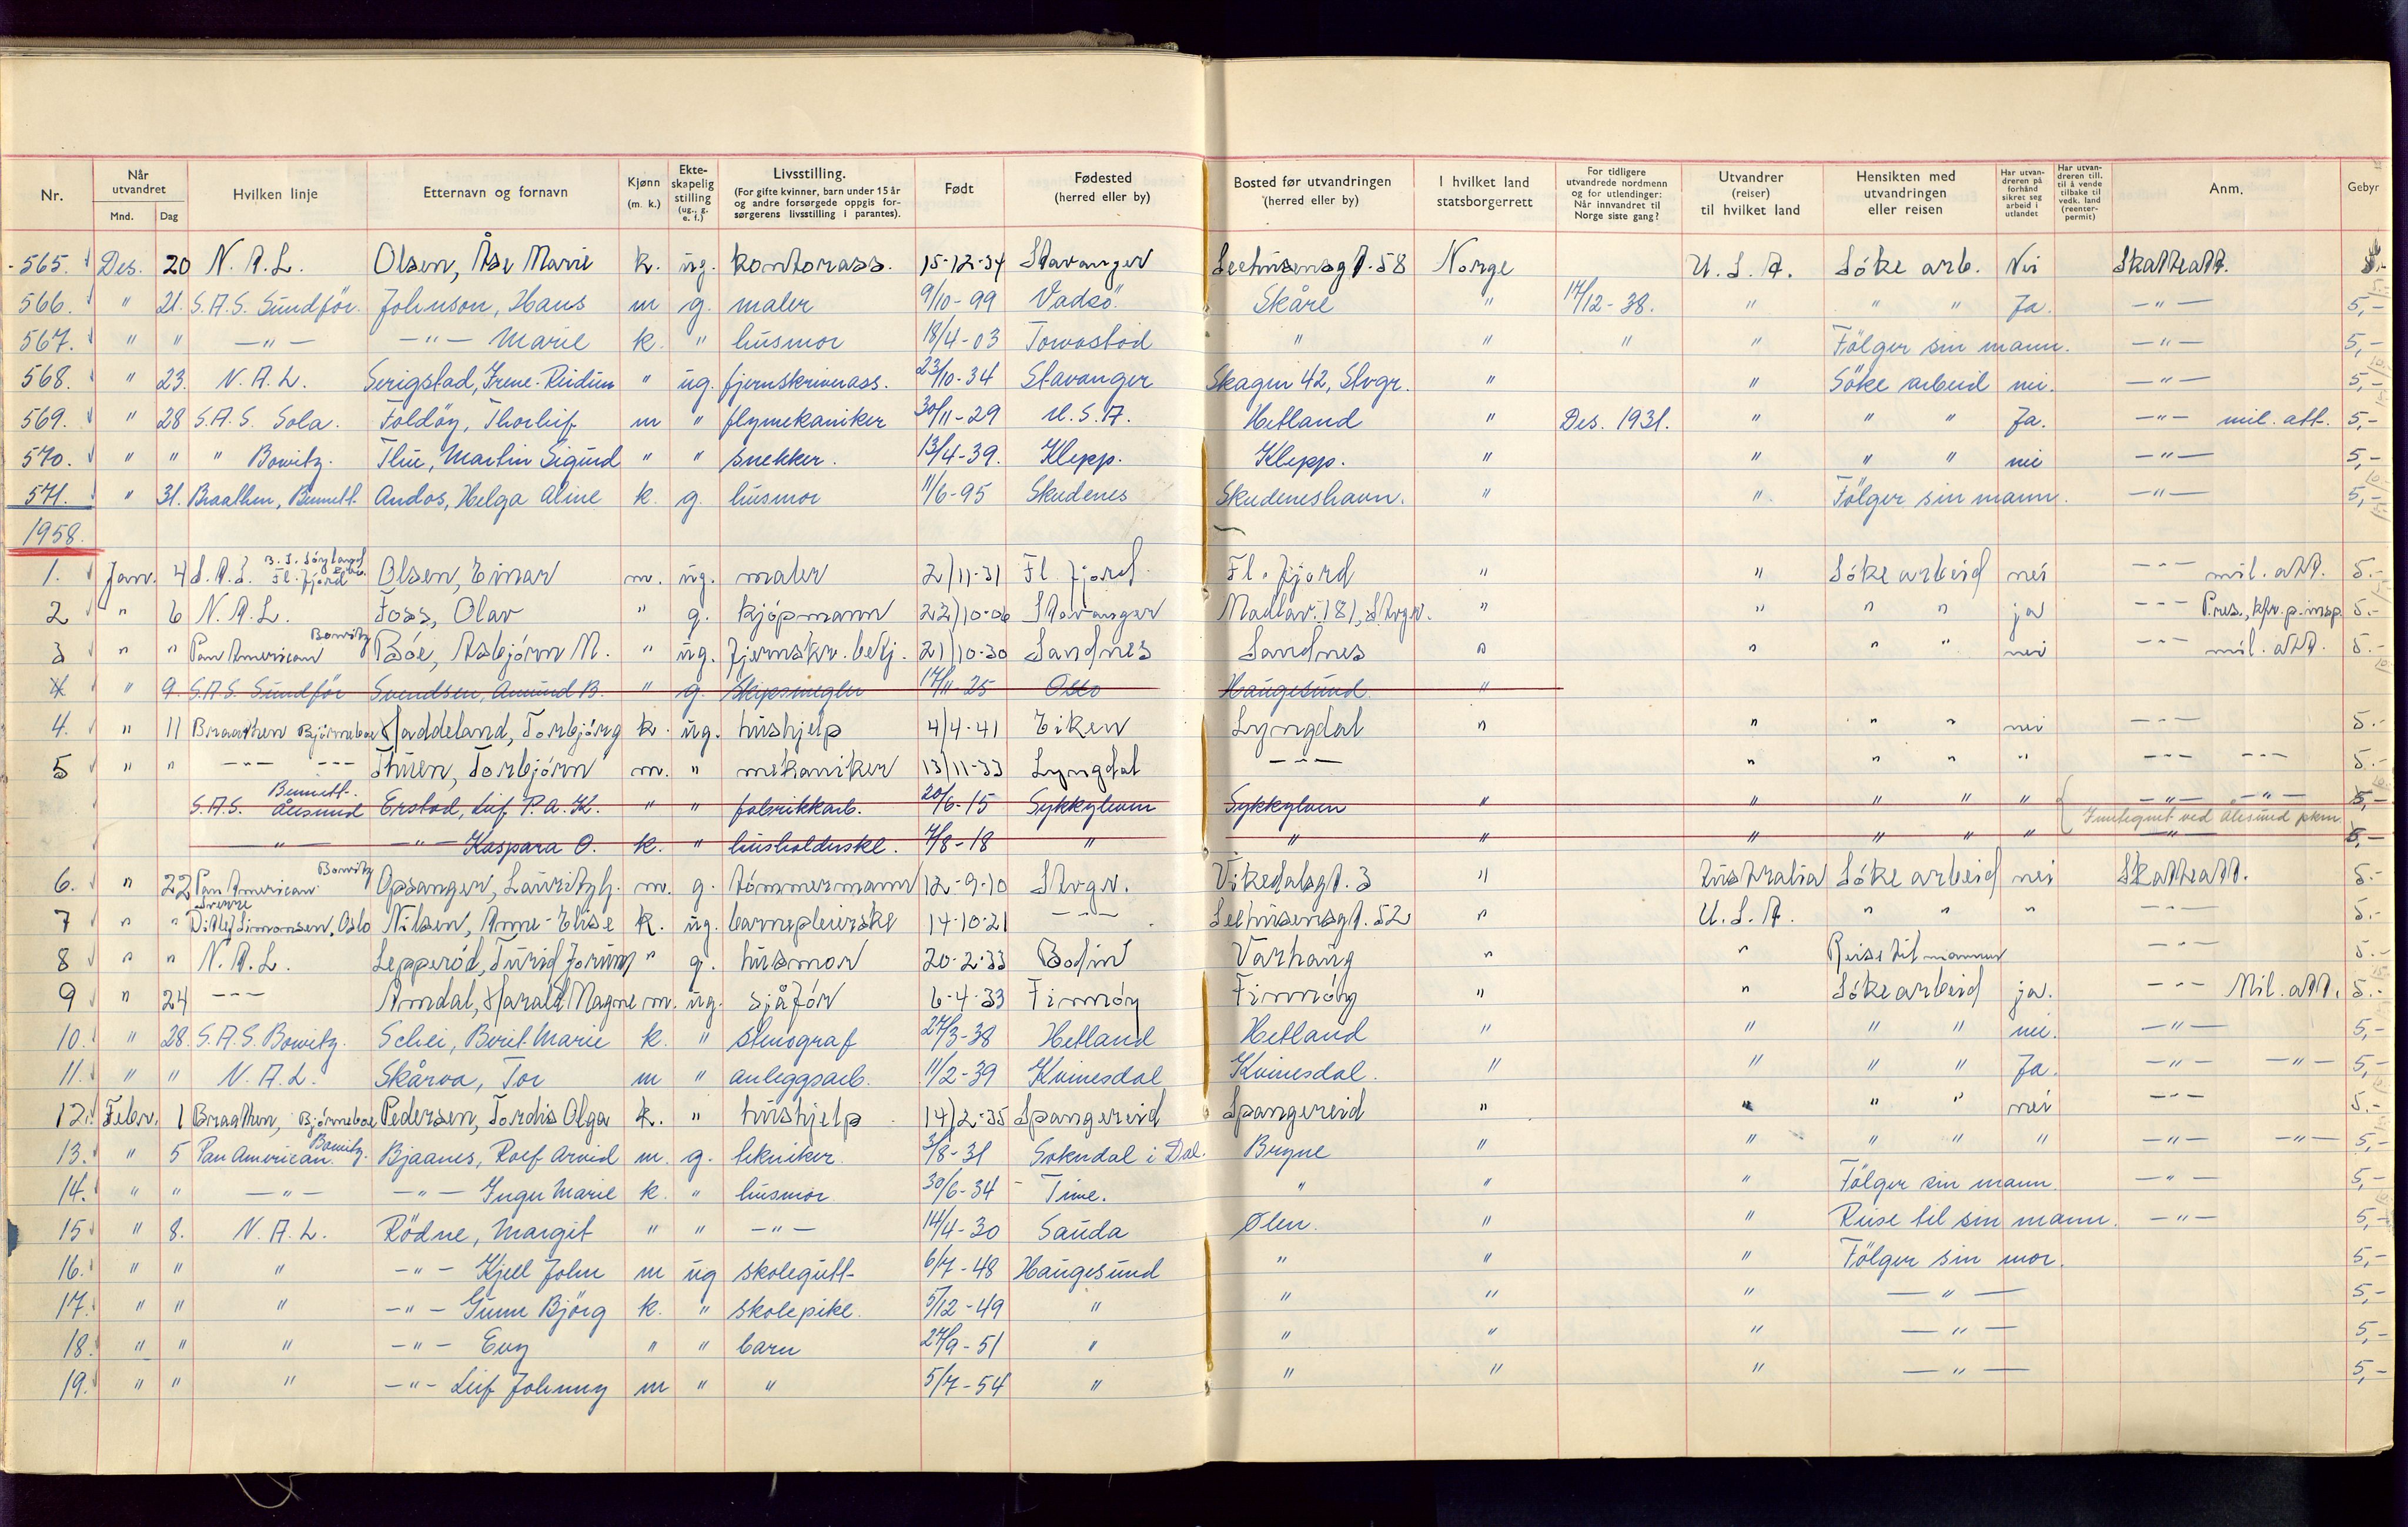 Nr. Når utvandret Mnd. Dag Hvilken linje Etternavn og fornavn Kjønn (m. k.) Ekteskapelig stilling (ug., g. e. f.) Livsstilling. (For gifte kvinner, barn under 15 år og andre forsørgede oppgis forsørgerens livsstilling i parantes). Født Fødested (herred eller by) Bosted før utvandringen (herred eller by) I hvilket land statsborgerrett For tidligere utvandrede nordmenn og for utlendinger: Når innvandret til Norge siste gang? Utvandrer (reiser) til hvilket land Hensikten med utvandringen eller reisen Har utvandreren på forhånd sikret seg arbeid i utlandet Har utvandreren till. til å vende tilbake til vedk. land (reenterpermit) Anm. Gebyr
565. Des. 20 N. A. L. Olsen, Åse Marie k. ug. kontorass. 15-12-34 Stavanger Seehusensgt. 58 Norge U. S. A. Söke arb. Nei Skatteatt. 5.-
566. " 21. S.A.S. Sundför. Johnson, Hans m g. maler 9/10-99 Vadsö. Skåre " 17/12-38. " " " Ja. -"- 5,-
567. " " -"- -"- Marie k. " husmor 18/4-03 Torvastad " " " " Fölger sin mann. -"- 5,-
568. " 23. N. A. L. Serigstad, Irene-Reidun " ug. fjernskriverass. 23/10-34 Stavanger Skagen 42, Stvgr. " " Söke arbeid nei. -"- 5,-
569. " 28 S.A.S. Sola. Foldöy, Thorleif m " flymekaniker 30/11-29 U.S.A. Hetland " Des. 1931. " " " Ja. -"- mil. att. 5,-
570. " " " Bowitz. Thu, Martin Sigurd " " snekker. 13/4-39. Klepp. Klepp. " " " " nei -"- 5,-
571. " 31. Braathen, Bennett. Andas, Helga Aline k. g. husmor 11/6-95 Skudenes Skudeneshavn. " ". Fölger sin mann. -"- 5,-
1958.
1. Jan. 4 S.A.S. Fl. fjord Olsen, Einar m. ug. maler 2/11-31 Fl. fjord. Fl. fjord " " Söke arbeid nei -"- mil. att. 5.-
2 " 6 N. A. L. Foss, Olav " g. kjöpmann 22/10-06 Stavanger Madlav. 181, Stvgr. " " " " ja -"- Pres., kfr. p. insp 5.-
3 " " Pan American Bowitz Böe, Asbjörn M. " ug. fjernskr. betj. 21/10-30 Sandnes Sandnes " " " " nei -"- mil. att. 5.-
4 " 9. S.A.S. Sundför Svendsen, Amund B. " g. Skipsmegler 17/11-25 Oslo Haugesund. "
4. " 11 Braathen Björneboe Haddeland, Torbjörg k. ug. hushjelp 4/4-41 Eiken Lyngdal " " " " nei -"- 5.-
5 " " -"- -"- Thuen, Torbjörn m. " mekaniker 13/11-33 Lyngdal -"- " " " " -"- -"- 5.-
S.A.S. Bennett. Ålesund Erstad, Leif P. A. K. " " fabrikkarb. 20/6-15 Sykkylven Sykkylven " " " " " -"- -"- 5,-
-"- -"- Kaspara O. k. " husholderske. 7/8-18 " " " " " " " Innlignet ved Ålesund pkm -"- 5,-
6. " 22 Pan American Bowitz Opsanger, Lauritz G. m. g. tömmermann 12-9-10 Stvgr. Vikedalsgt. 3 " Australia Söke arbeid nei Skatteatt. 5.-
7 " " Sverre Ditlef Simonsen, Oslo Nilsen, Anne-Elise k. ug. barnepleierske 14-10-21 -"- Seehusensgt. 52 " U. S. A. " " " -"- 5.-
8 " " N. A. L. Lepperöd, Turid Jorunn " g. husmor 20-2-33 Bodin Varhaug " " Reise til mannen -"- 5.-
9 " 24 -"- Amdal, Harald Magne m. ug. sjåför 6-4-33 Finnöy Finnöy " " Söke arbeid ja. -"- Mil. att. 5.-
10. " 28. S.A.S. Bowitz. Schei, Berit Marie k. " stenograf 27/3-38 Hetland Hetland " " " " nei. -"- 5,-
11. " " N. A. L. Skårva, Tor m " anleggsarb. 11/2-39 Kvinesdal Kvinesdal. " " " " Ja. -"- -"- 5,-
12. Febr. 1 Braathen, Björneboe Pedersen, Tordis Olga k. " hushjelp 14/2-35 Spangereid Spangereid " " " " nei 5.-
13. " 5 Pan American. Bowitz. Bjaanes, Rolf Arvid m. g. tekniker. 3/8-31 Sokndal i Dal. Bryne " " " " " -"- -"- 5,-
14. " " -"- -"- Inger Marie k. " husmor 30/6-34 Time. " " " Fölger sin mann. -"- 5,-
15 " 8. N. A. L. Rödne, Margit " " -"- 14/4-30 Sauda Ølen. " " Reise til sin mann. -"- 5,-
16. " " " -"- Kjell John m ug skolegutt- 6/7-48 Haugesund " " " Fölger sin mor. 5,-
17. " " " -"- Gunn Björg k. " skolepike. 5/12-49 " " " " -"- 5,-
18. " " " -"- Evy " " barn 27/9-51 " " " " -"- 5,-
19. " " " -"- Leif Johnny m " " 5/7-54 " " " " -"- 5,-